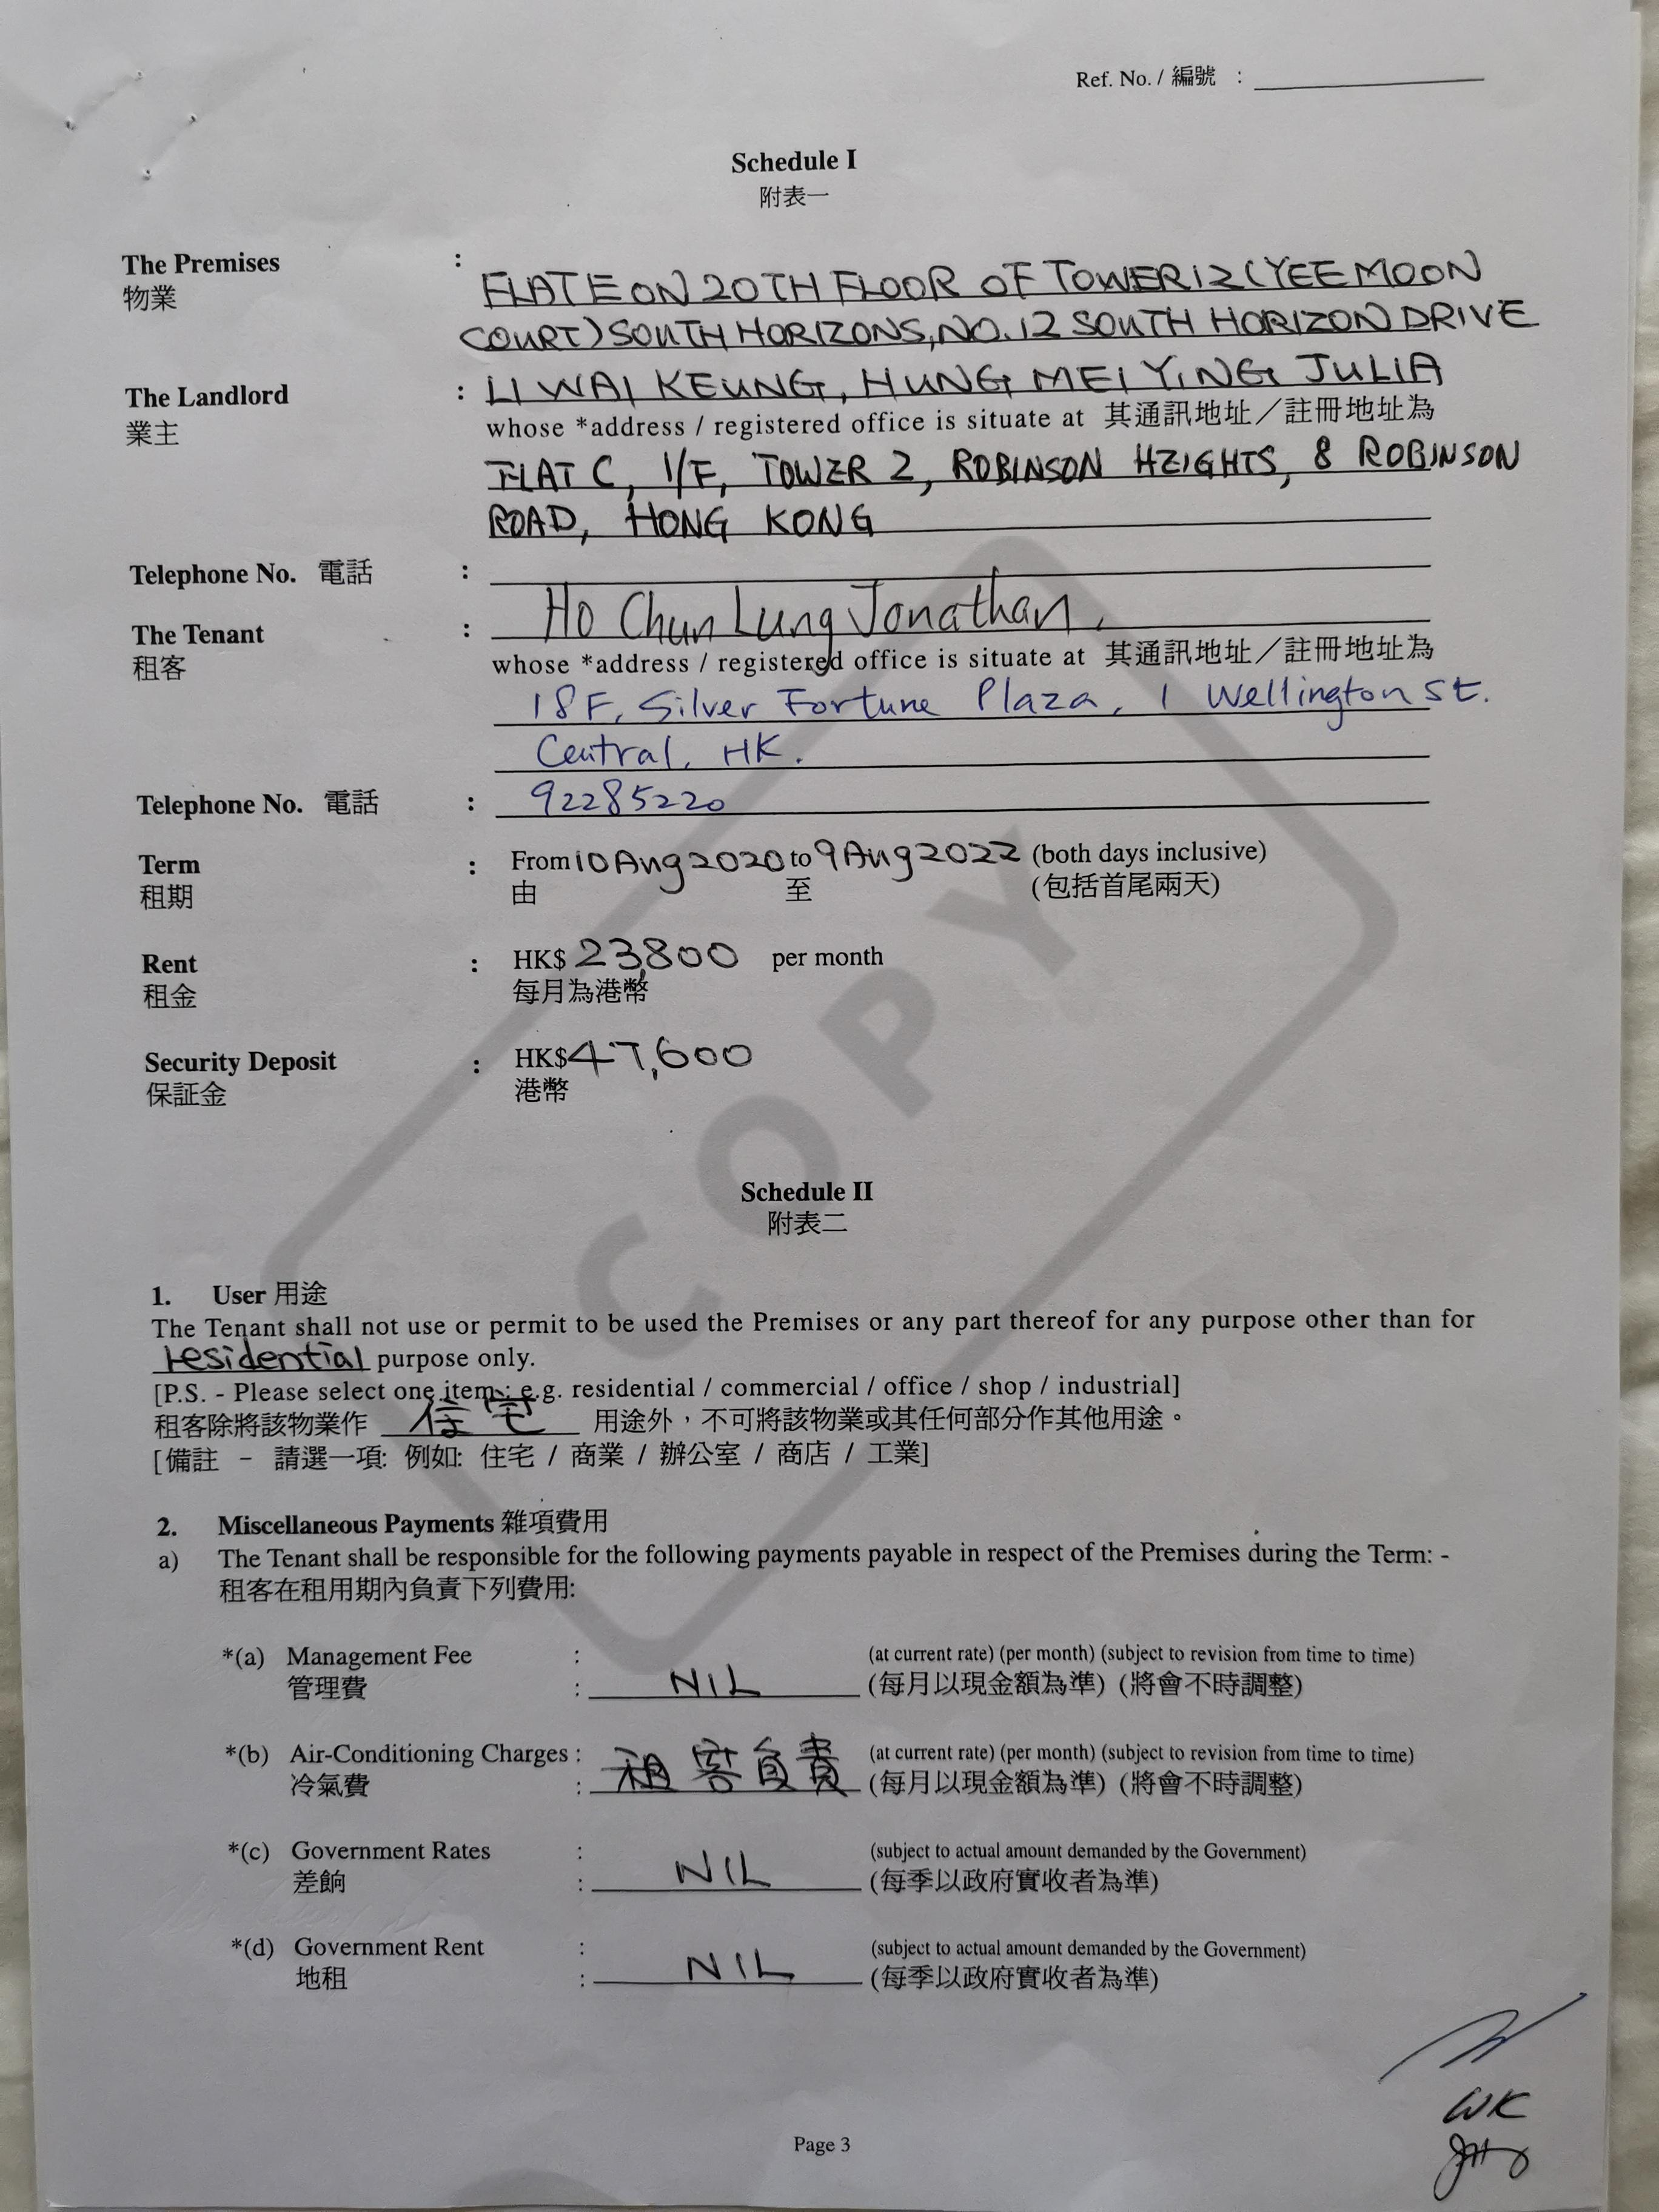 Ref. No. / 編號 :
Schedule I
附表一
The Premises :
物業
FLAT E ON 20TH FLOOR OF TOWER 12 (YEE MOON
COURT) SOUTH HORIZONS, NO. 12 SOUTH HORIZON DRIVE
The Landlord : LI WAI KEUNG, HUNG MEI YING JULIA
業主
whose *address / registered office is situate at 其通訊地址／註冊地址為
FLAT C, 1/F, TOWER 2, ROBINSON HEIGHTS, 8 ROBINSON
ROAD, HONG KONG
Telephone No. 電話 :
The Tenant : Ho Chun Lung Jonathan
租客
whose *address / registered office is situate at 其通訊地址／註冊地址為
18F, Silver Fortune Plaza, 1 Wellington St.
Central, HK.
Telephone No. 電話 : 92285220
Term : From 10 Aug 2020 to 9 Aug 2022 (both days inclusive)
租期 由 至 (包括首尾兩天)
Rent : HK$ 23,800 per month
租金 每月為港幣
Security Deposit : HK$ 47,600
保証金 港幣
COPY
Schedule II
附表二
1. User 用途
The Tenant shall not use or permit to be used the Premises or any part thereof for any purpose other than for
residential purpose only.
[P.S. - Please select one item : e.g. residential / commercial / office / shop / industrial]
租客除將該物業作 住宅 用途外，不可將該物業或其任何部分作其他用途。
[備註 - 請選一項: 例如: 住宅 / 商業 / 辦公室 / 商店 / 工業]
2. Miscellaneous Payments 雜項費用
a) The Tenant shall be responsible for the following payments payable in respect of the Premises during the Term: -
租客在租用期內負責下列費用:
*(a) Management Fee : (at current rate) (per month) (subject to revision from time to time)
管理費 : NIL (每月以現金額為準) (將會不時調整)
*(b) Air-Conditioning Charges : 租客負責 (at current rate) (per month) (subject to revision from time to time)
冷氣費 : (每月以現金額為準) (將會不時調整)
*(c) Government Rates : (subject to actual amount demanded by the Government)
差餉 : NIL (每季以政府實收者為準)
*(d) Government Rent : (subject to actual amount demanded by the Government)
地租 : NIL (每季以政府實收者為準)
WK
Page 3